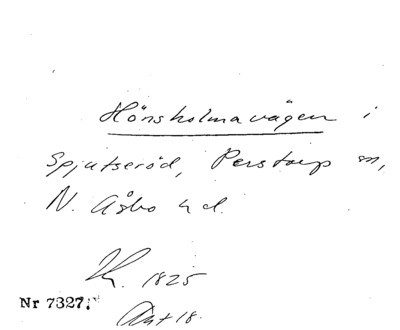 Hönsholmavägen i
Spjutseröd, Perstorp sn,
N. Åsbo hd.
1825
Nr 7327.
Akt 18.